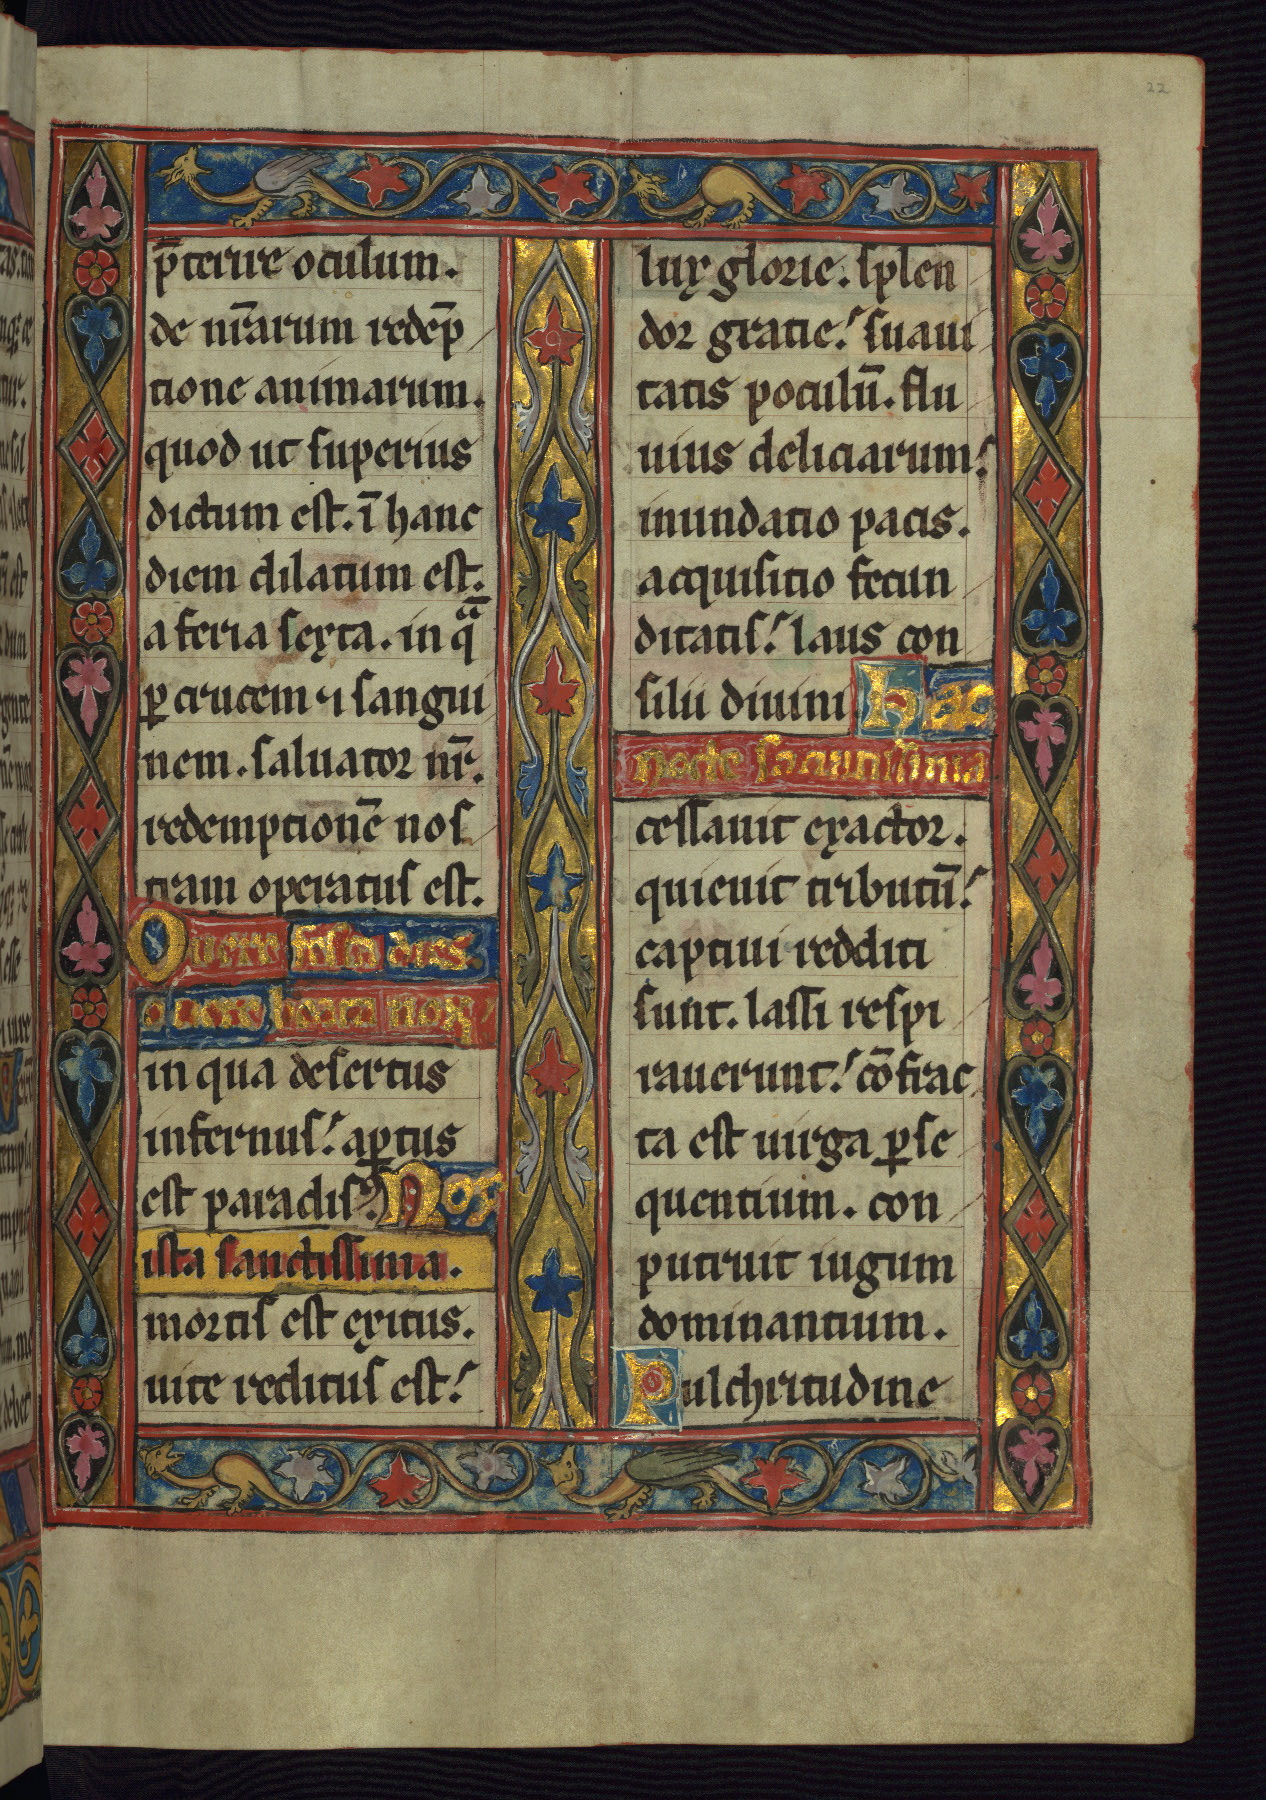 22
p̄terire oculum.
de nr̄arum redēp
tione animarum.
quod ut superius
dictum est. ī hanc
diem dilatum est.
a feria sexta. in qᵃ̄
ꝑ crucem ⁊ sangui
nem. saluator nr̄.
redemptionē nos
tram operatus est.
O uere festa dies
o uere beata nox
in qua desertus
infernus! aꝑtus
est paradisꝰ. Nox
ista sanctissima.
mortis est exitus.
uite reditus est!
lux glorie. splen
dor gratie! suaui
tatis poculū. flu
uius deliciarum!
inundatio pacis.
acquisitio fecun
ditatis! laus con
silii diuini hac
nocte sanctissima
cessauit exactor.
quieuit tributū!
captiui redditi
sunt. lassi respi
rauerunt! cōfrac
ta est uirga ꝑse
quentium. con
putruit iugum
dominantium.
Pulchritudine